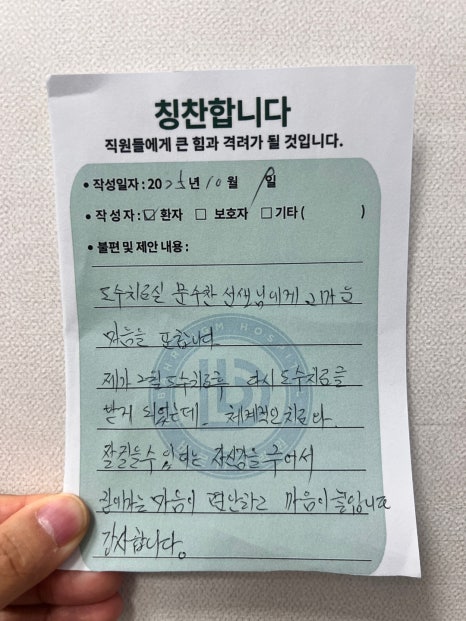 칭찬합니다
직원들에게 큰 힘과 격려가 될 것입니다.
• 작성일자 : 2025년 10월 일
• 작 성 자 : ☑ 환자 ☐ 보호자 ☐ 기타 ( )
• 불편 및 제안 내용 :
도수치료실 문수찬 선생님에게 고마운
마음을 표합니다.
제가 2월 도수치료후 다시 도수치료를
받게 되었는데 체계적인 치료와
잘걸을수 있다는 자신감을 주어서
마음이 편안하고 마음이 놓입니다
감사합니다.